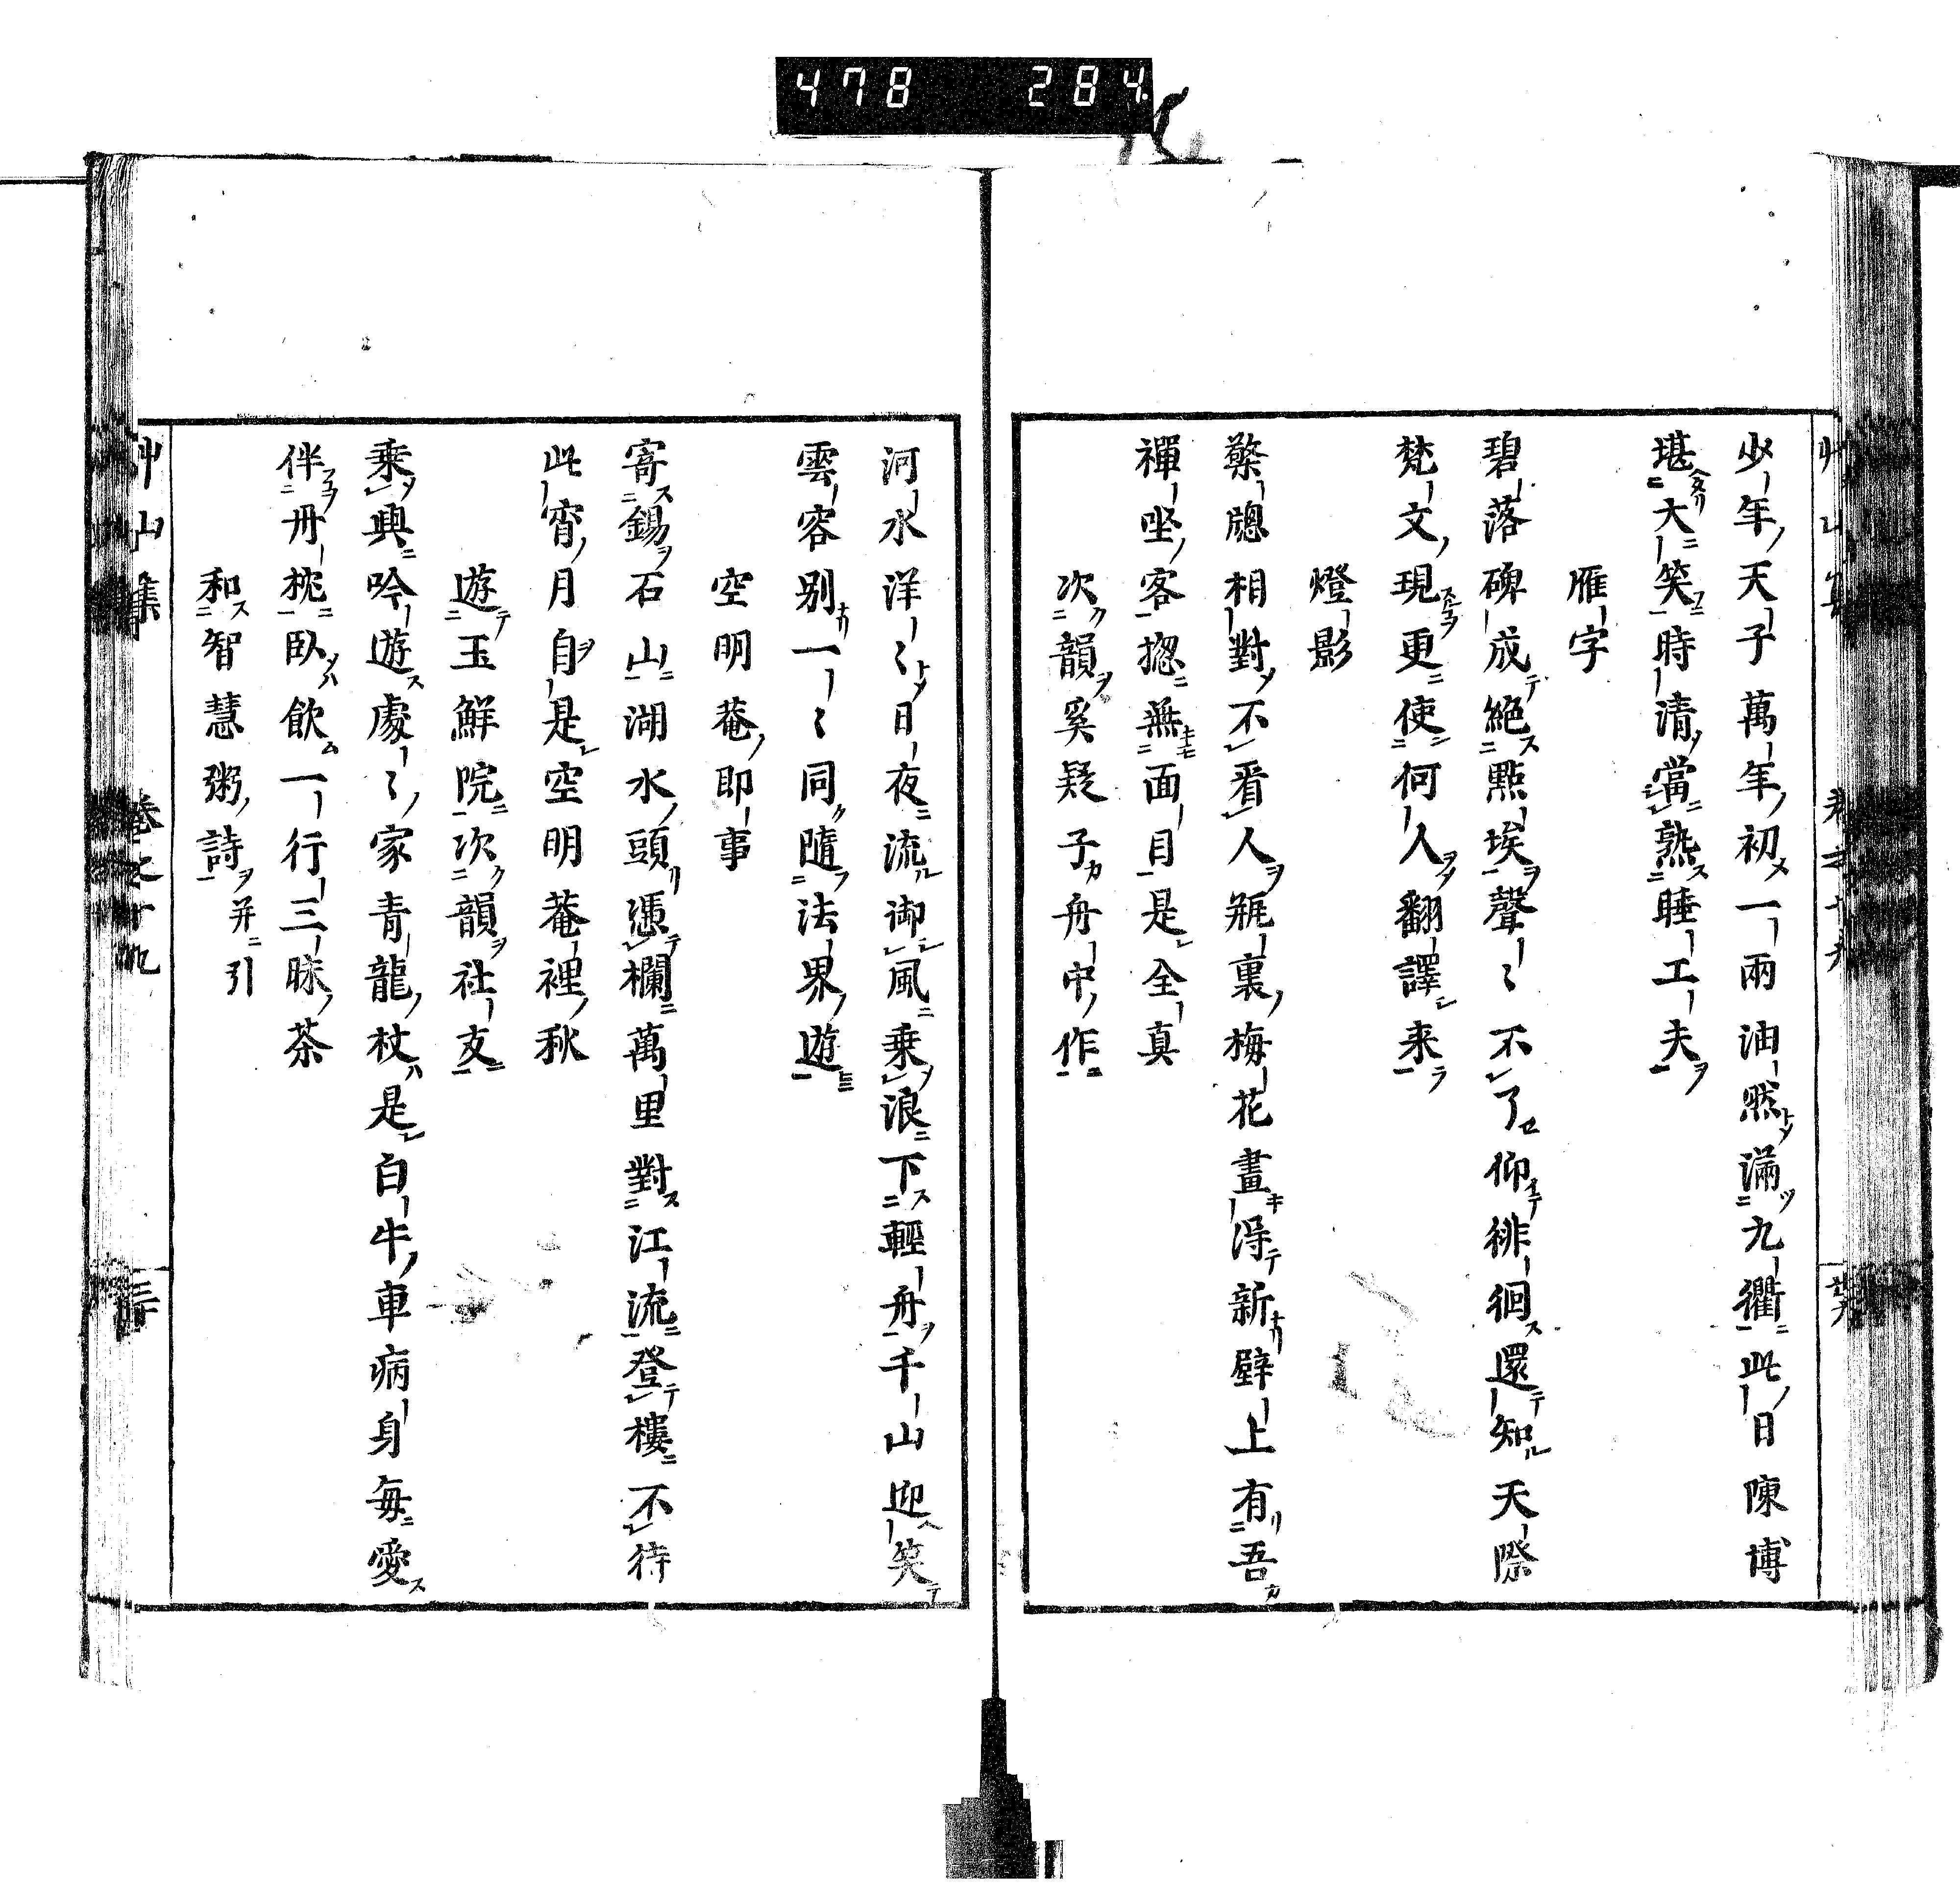 478 284
少年天子萬年初一兩油然滿九衢此日陳博
堪大笑時清當熟睡工夫
雁字
碧落碑成絕點埃聲〻不了仰徘徊還知天際
梵文現更使何人翻譯来
燈影
檠牕相對不看人瓶裏梅花畫得新壁上有吾
禪坐客揔無面目是全真
次韻奚疑子舟中作
河水洋〻日夜流御風乗浪下輕舟千山迎笑
雲容別一〻同隨法界遊
空明菴即事
寄錫石山湖水頭憑欄萬里對江流登樓不待
此宵月自是空明菴裡秋
遊玉鮮院次韻社友
乗興吟遊處〻家青龍杖是白牛車病身每愛
伴冊枕臥飲一行三昧茶
和智慧粥詩并引
艸山集 卷之十九 三十